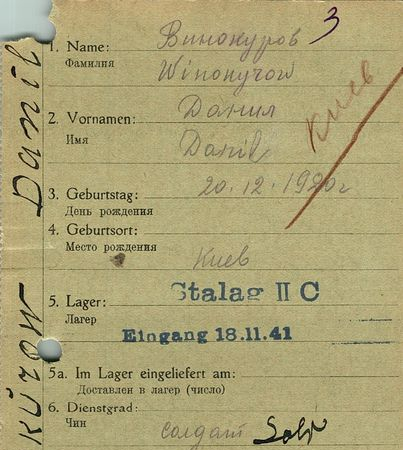 3
1. Name:
Винокуров
Фамилия
Winokurow
2. Vornamen:
Данил
Имя
Danil
Киев
3. Geburtstag:
20.12.1920г
День рождения
4. Geburtsort:
Место рождения
Киев
5. Lager:
Stalag II C
Лагер
Eingang 18.11.41
5a. Im Lager eingeliefert am:
Доставлен в лагер (число)
6. Dienstgrad:
Чин
солдат
kúrow Daníl